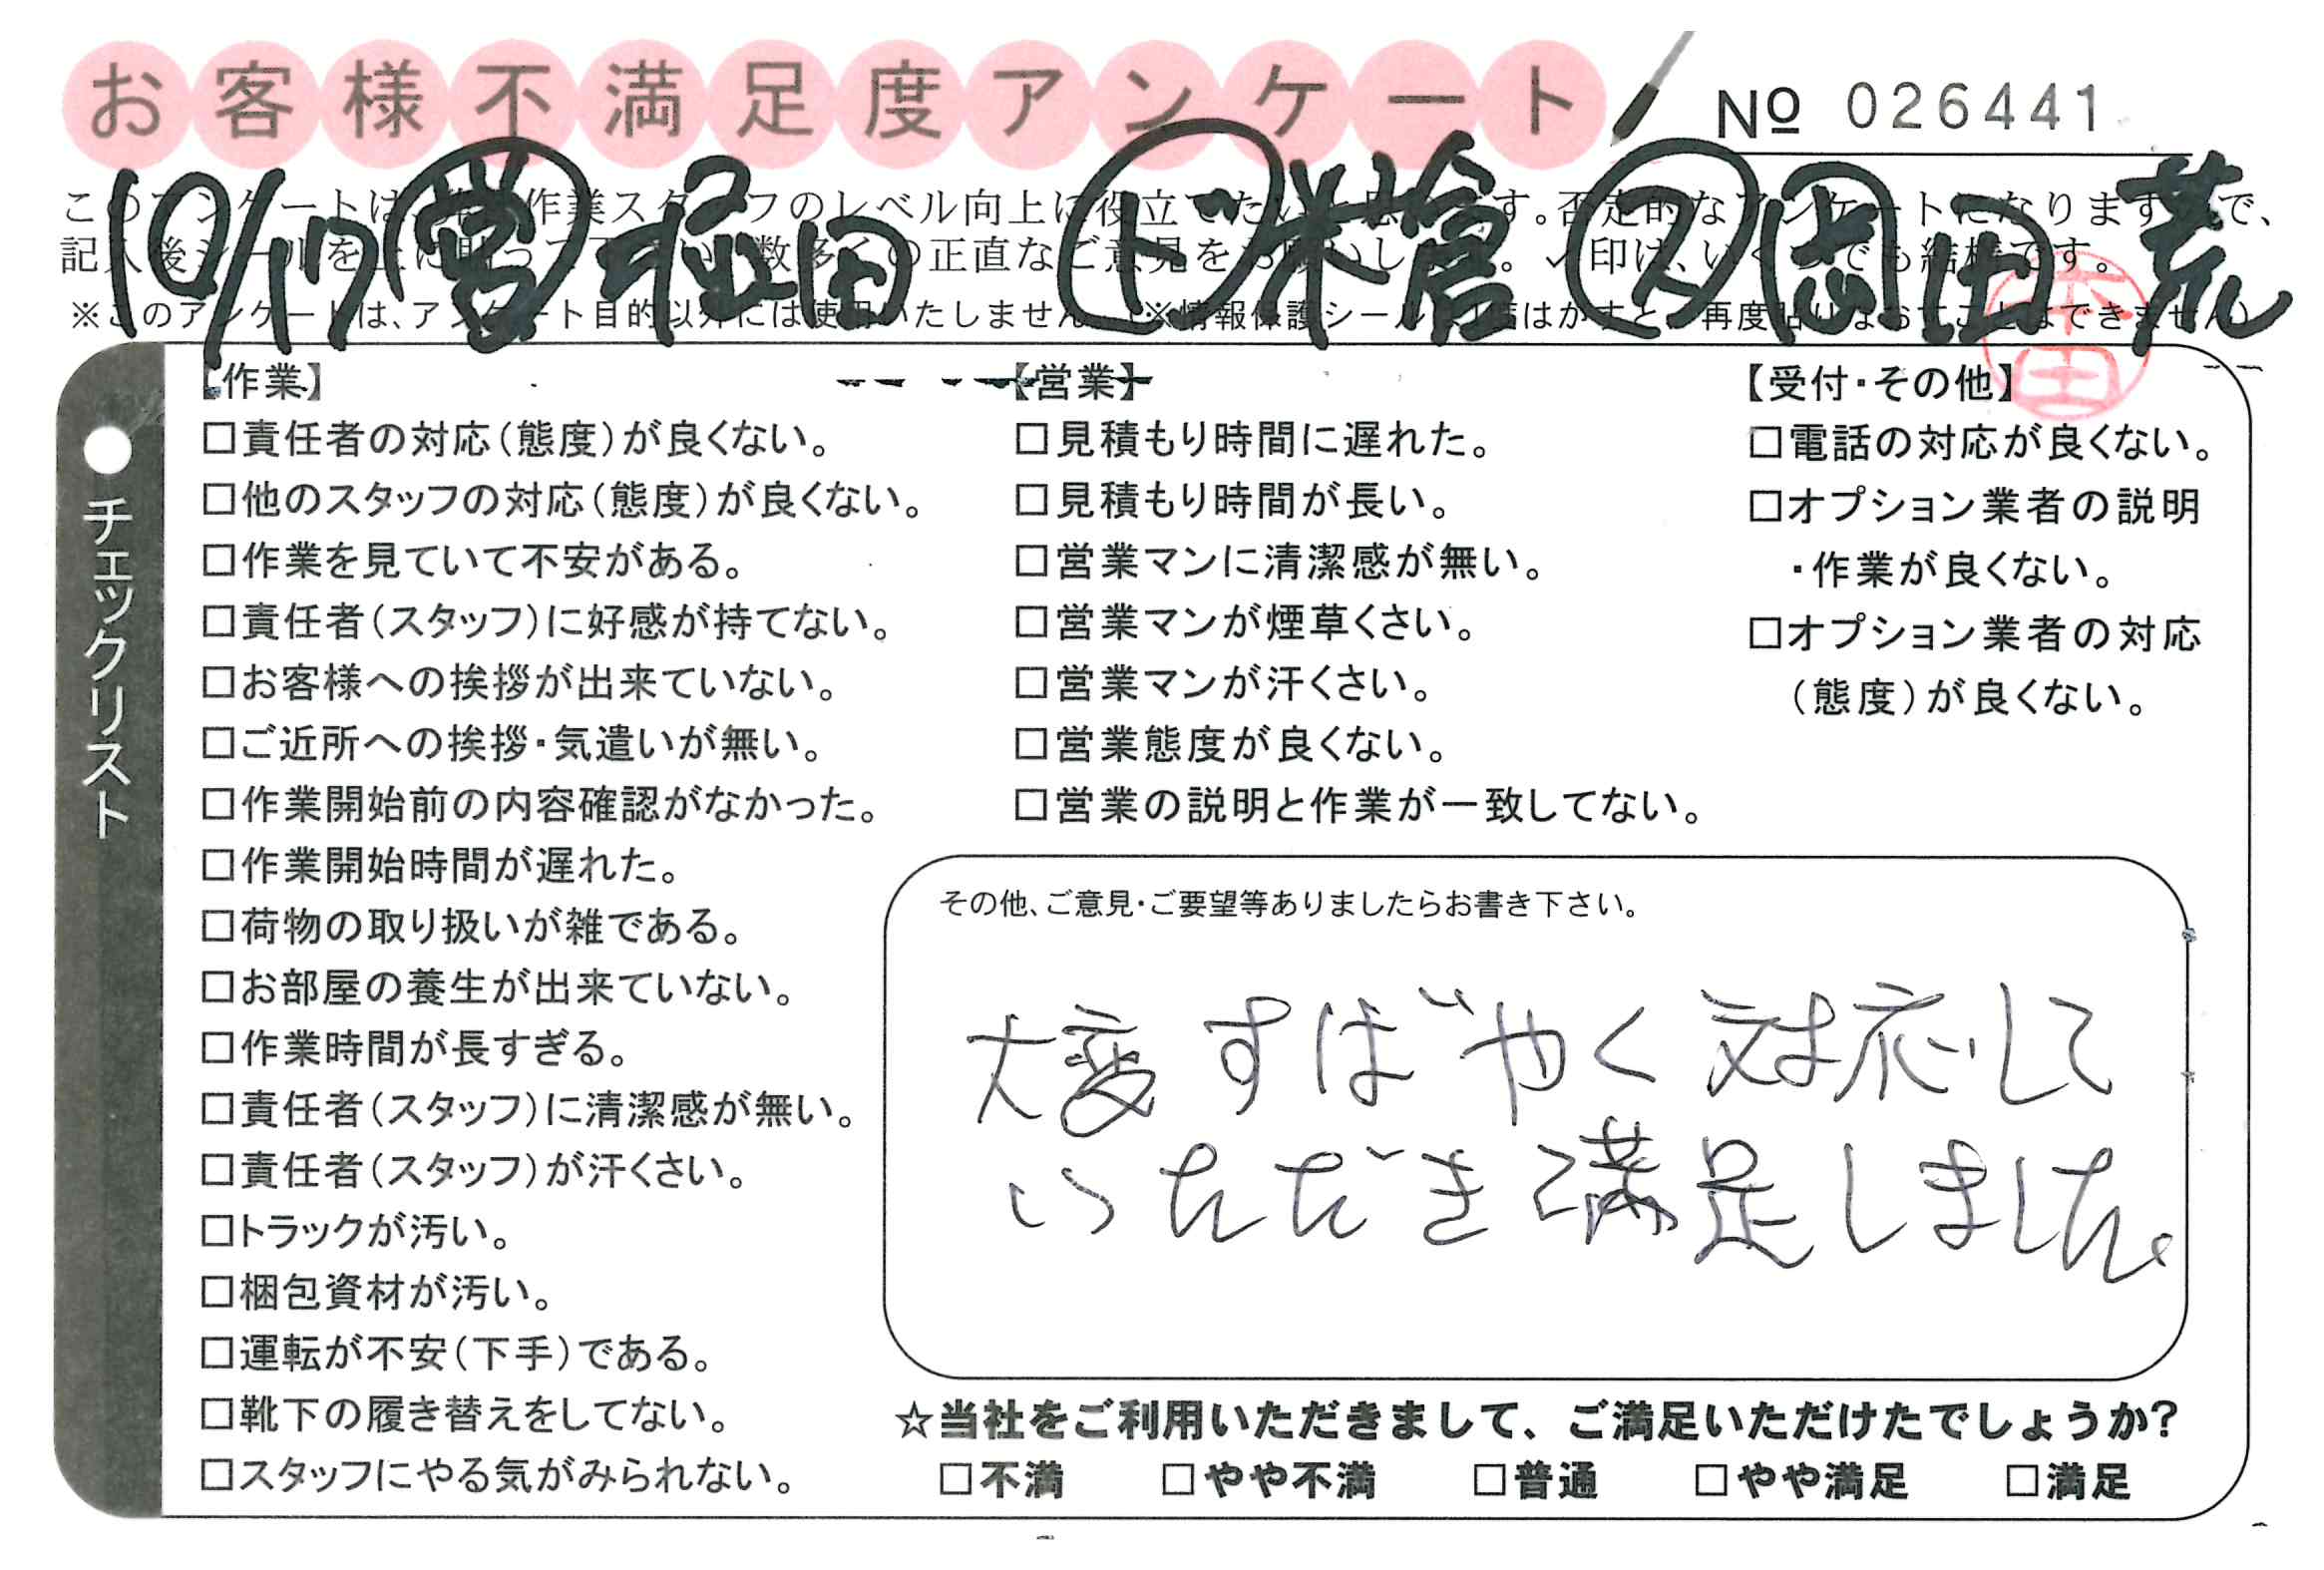 お客様不満足度アンケート
№ 026441
10/17 営 堀田 ド 米倉 ス 岡田 荒
このアンケートは 作業スタッフのレベル向上に役立てたい す。否定的なアンケートになります で、
記入後シールを上に貼って下 い 数多くの正直なご意見をお願いし 。✓印は、いくつでも結構です。
※このアンケートは、アンケート目的以外には使用いたしません。(※情報保護シールは1度はがすと、再度貼りなおすことはできません)
●チェックリスト
【作業】
□責任者の対応(態度)が良くない。
□他のスタッフの対応(態度)が良くない。
□作業を見ていて不安がある。
□責任者(スタッフ)に好感が持てない。
□お客様への挨拶が出来ていない。
□ご近所への挨拶・気遣いが無い。
□作業開始前の内容確認がなかった。
□作業開始時間が遅れた。
□荷物の取り扱いが雑である。
□お部屋の養生が出来ていない。
□作業時間が長すぎる。
□責任者(スタッフ)に清潔感が無い。
□責任者(スタッフ)が汗くさい。
□トラックが汚い。
□梱包資材が汚い。
□運転が不安(下手)である。
□靴下の履き替えをしてない。
□スタッフにやる気がみられない。
【営業】
□見積もり時間に遅れた。
□見積もり時間が長い。
□営業マンに清潔感が無い。
□営業マンが煙草くさい。
□営業マンが汗くさい。
□営業態度が良くない。
□営業の説明と作業が一致してない。
【受付・その他】
□電話の対応が良くない。
□オプション業者の説明
・作業が良くない。
□オプション業者の対応
(態度)が良くない。
その他、ご意見・ご要望等ありましたらお書き下さい。
大変すばやく対応して
いただき満足しました。
☆当社をご利用いただきまして、ご満足いただけたでしょうか?
□不満 □やや不満 □普通 □やや満足 □満足